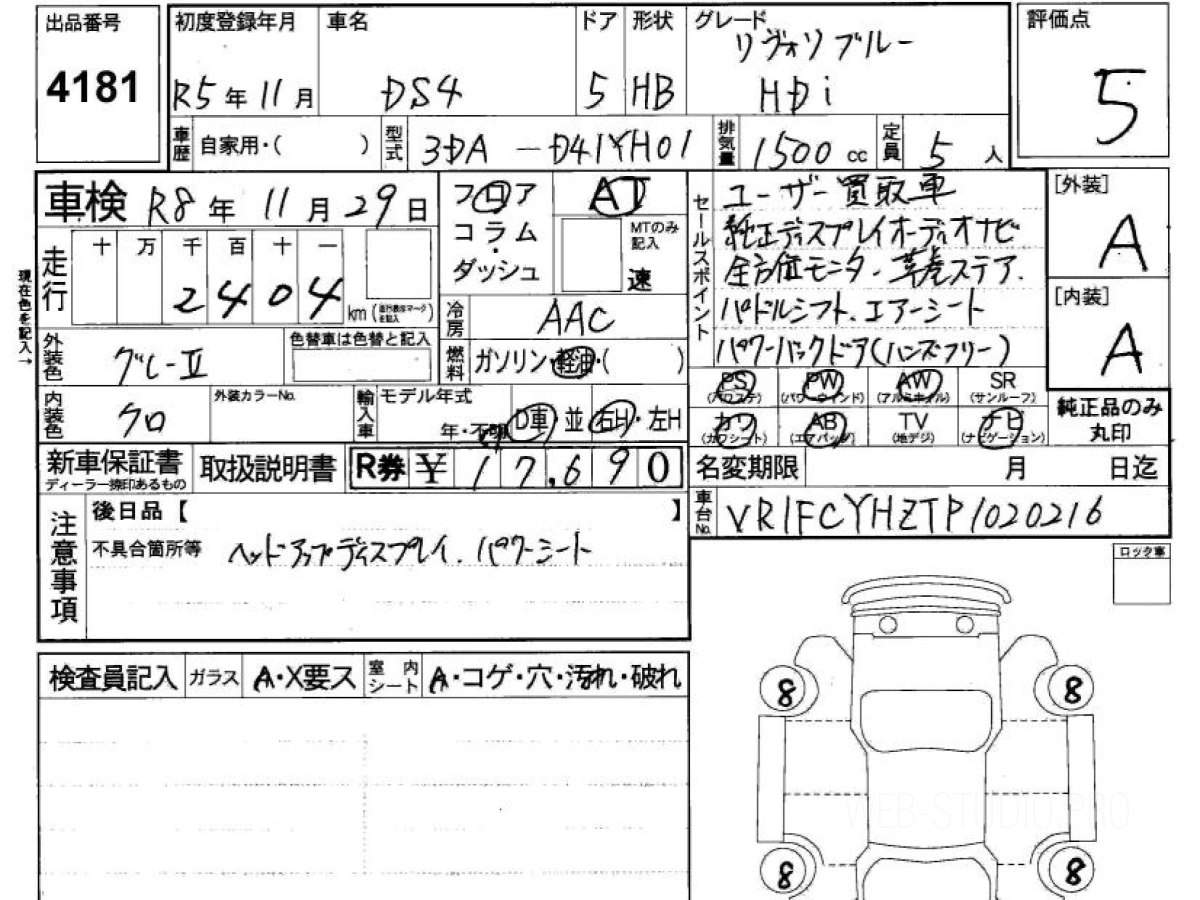 出品番号
4181
初度登録年月
R5年11月
車名
DS4
ドア
5
形状
HB
グレード
リヴォリブルー
HDi
評価点
5
車歴
自家用・( )
型式
3DA-D41YH01
排気量
1500cc
定員
5人
車検 R8年11月29日
フロア
コラム・
ダッシュ
AT
MTのみ記入
速
セールスポイント
ユーザー買取車
純正ディスプレイオーディオナビ
全方位モニター 革巻ステア.
パドルシフト.エアーシート
パワーバックドア(ハンズフリー)
[外装]
A
[内装]
A
現在色を記入→
走行
十 万 千 百 十 一
2404
km
冷房
AAC
外装色
グレーII
色替車は色替と記入
燃料
ガソリン・軽油・( )
内装色
クロ
外装カラーNo.
輸入車
モデル年式
年・不明
D車・並
右H・左H
PS
(パワステ)
PW
(パワーウインド)
AW
(アルミホイル)
SR
(サンルーフ)
カワ
(カワシート)
AB
(エアバッグ)
TV
(地デジ)
ナビ
(ナビゲーション)
純正品のみ
丸印
新車保証書
ディーラー捺印あるもの
取扱説明書
R券 ¥17,690
名変期限 月 日迄
車台No.
VR1FCYHZTP1020216
注意事項
後日品【 】
不具合箇所等 ヘッドアップディスプレイ.パワーシート
ロック車
検査員記入
ガラス
A・X要ス
室内シート
A・コゲ・穴・汚れ・破れ
8
8
8
8
WEB-STUDIO.PRO